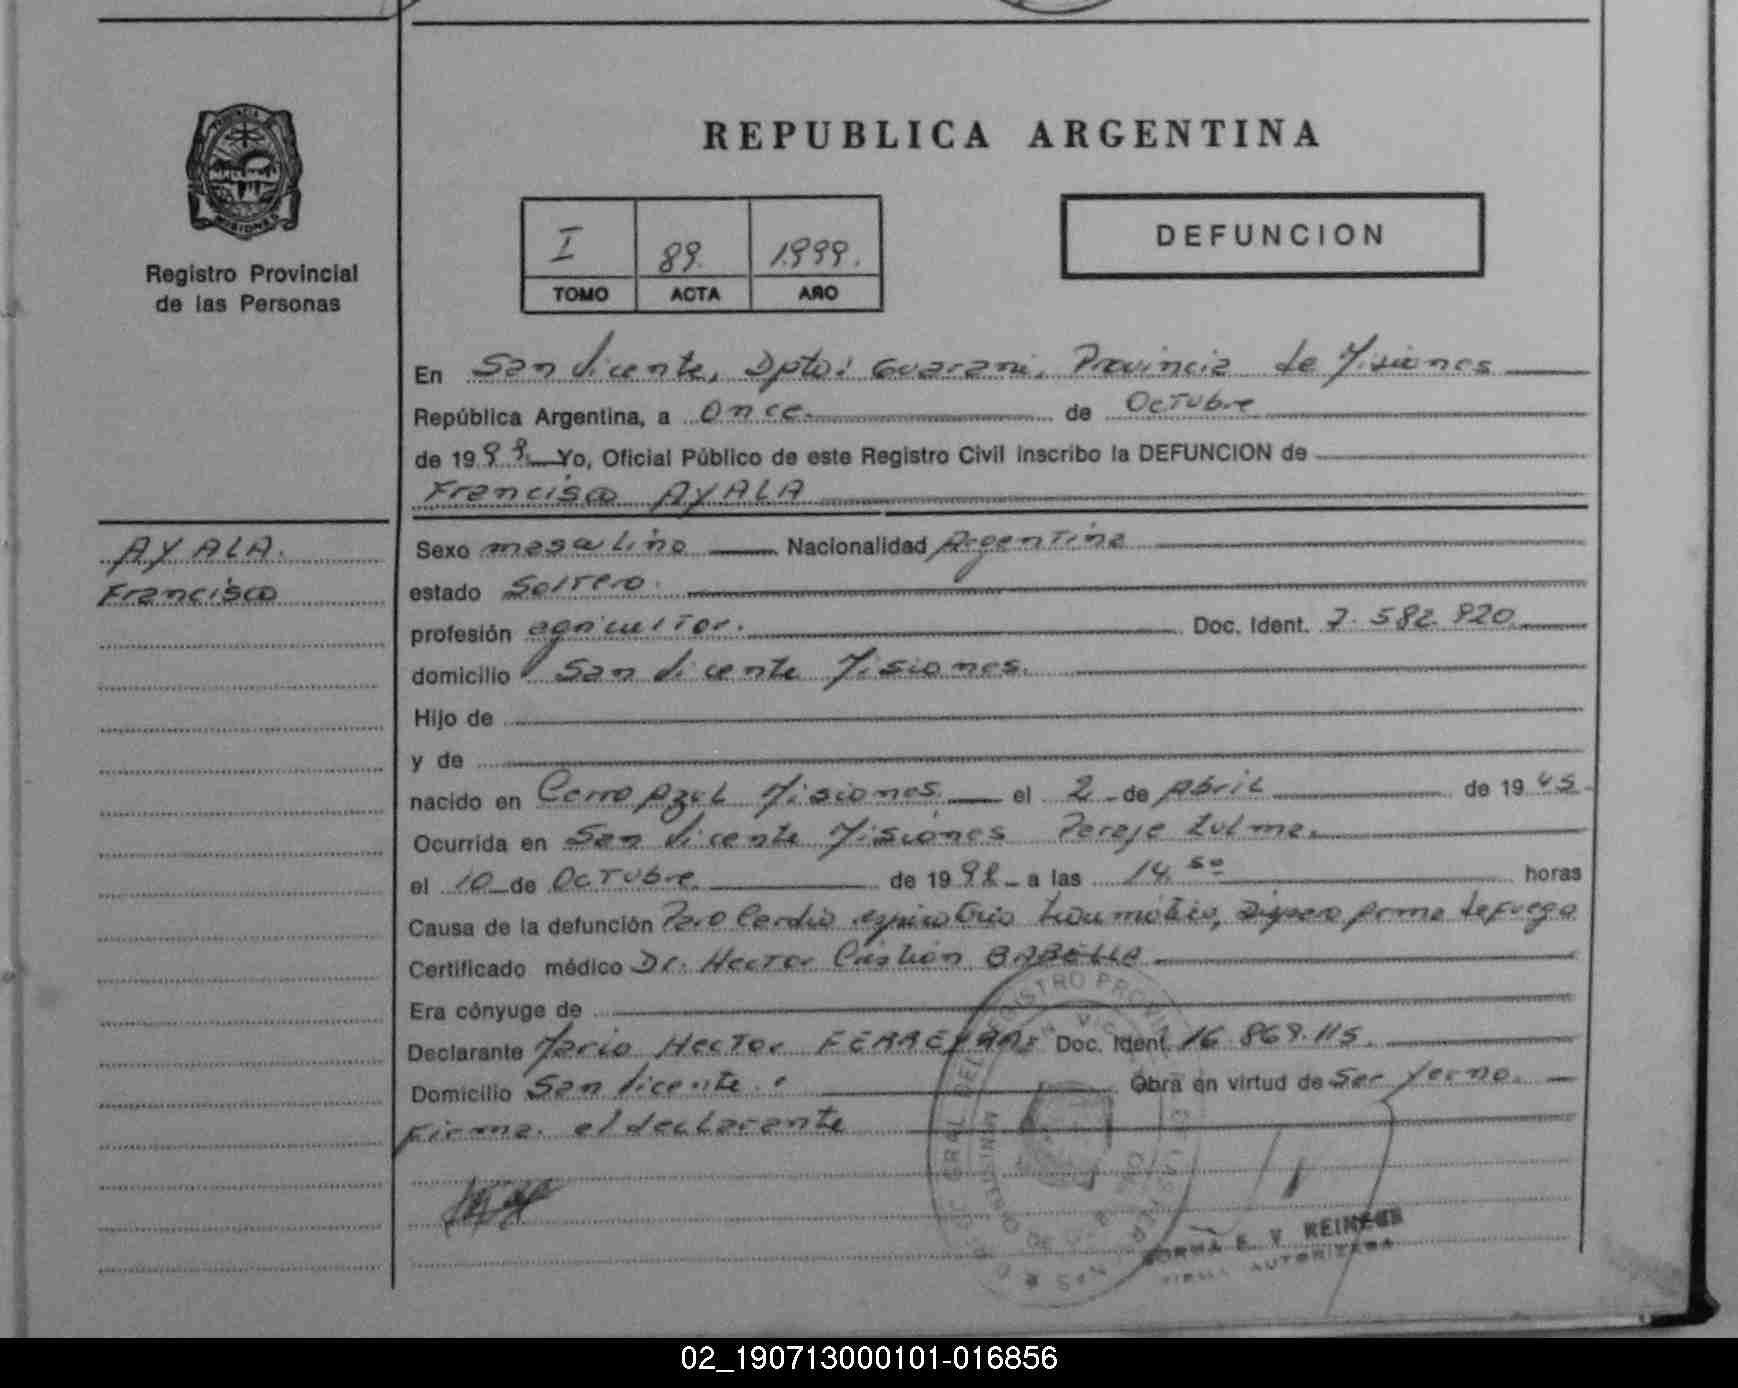 REPUBLICA ARGENTINA
PROVINCIA DE
MISIONES
Registro Provincial
de las Personas
I 89. 1.999.
TOMO ACTA AÑO
DEFUNCION
En San Vicente, Dpto: Guarani. Provincia de Misiones
República Argentina, a Once. de Octubre
de 1999. Yo, Oficial Público de este Registro Civil inscribo la DEFUNCION de
Francisco AYALA
AYALA.
Francisco
Sexo masculino Nacionalidad Argentina
estado Soltero.
profesión agricultor. Doc. Ident. 7.582.920.
domicilio San Vicente Misiones.
Hijo de
y de
nacido en Cerro Azul Misiones el 2 de Abril de 1945.
Ocurrida en San Vicente Misiones Paraje Zulma.
el 10 de Octubre de 199 a las 14.50 horas
Causa de la defunción Paro Cardio respiratorio traumático, Disparo Arma de fuego
Certificado médico Dr. Hector Cristian
Era cónyuge de
Declarante Mario Hector FERREYRA: Doc. Ident. 16.869.115.
Domicilio San Vicente. Obra en virtud de Ser Yerno.
Firma. el declarante
NORMA E. V. REINEHR
FIRMA AUTORIZADA
02_190713000101-016856